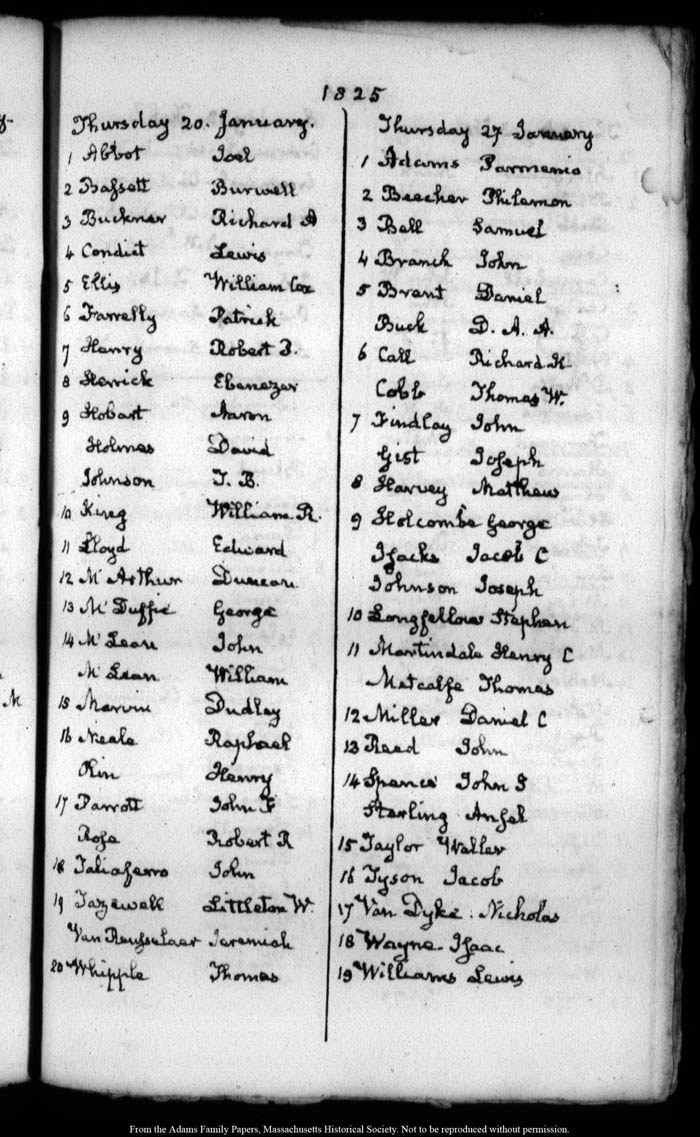 1825
Thursday 20. January.
1 Abbot Joel
2 Bassett Burwell
3 Buckner Richard A
4 Condict Lewis
5 Ellis William Cox
6 Farrelly Patrick
7 Henry Robert P.
8 Herrick Ebenezer
9 Hobart Aaron
Holmes David
Johnson J. B.
10 King William R.
11 Lloyd Edward
12 Mc Arthur Duncan
13 Mc Duffie George
14 Mc Lean John
Mc Lean William
15 Marvin Dudley
16 Neale Raphael
Henry
17 Parrott John F
Rose Robert R
18 Taliaferro John
19 Tazewell Littleton W.
Van Rensselaer Jeremiah
20 Whipple Thomas
Thursday 27 January
1 Adams Parmenio
2 Beecher Philemon
3 Bell Samuel
4 Branch John
5 Brent Daniel
Buck D. A. A.
6 Call Richard K
Cobb Thomas W.
7 Findlay John
Gist Joseph
8 Harvey Matthew
9 Holcombe George
Isacks Jacob C
Johnson Joseph
10 Longfellow Stephen
11 Martindale Henry C
Metcalfe Thomas
12 Miller Daniel C
13 Reed John
14 Spence John S
Sterling Ansel
15 Taylor Waller
16 Tyson Jacob
17 Van Dyke. Nicholas
18 Wayne Isaac
19 Williams Lewis
M
From the Adams Family Papers, Massachusetts Historical Society. Not to be reproduced without permission.